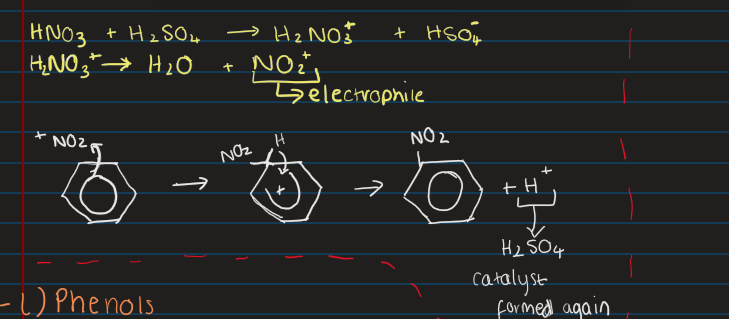 HNO₃ + H₂SO₄ → H₂NO₃⁺ + HSO₄⁻
H₂NO₃⁺ → H₂O + NO₂⁺
↳ electrophile
⁺NO₂ NO₂ H NO₂
+ → → + H⁺
H₂SO₄
catalyst
formed again
- L) Phenols